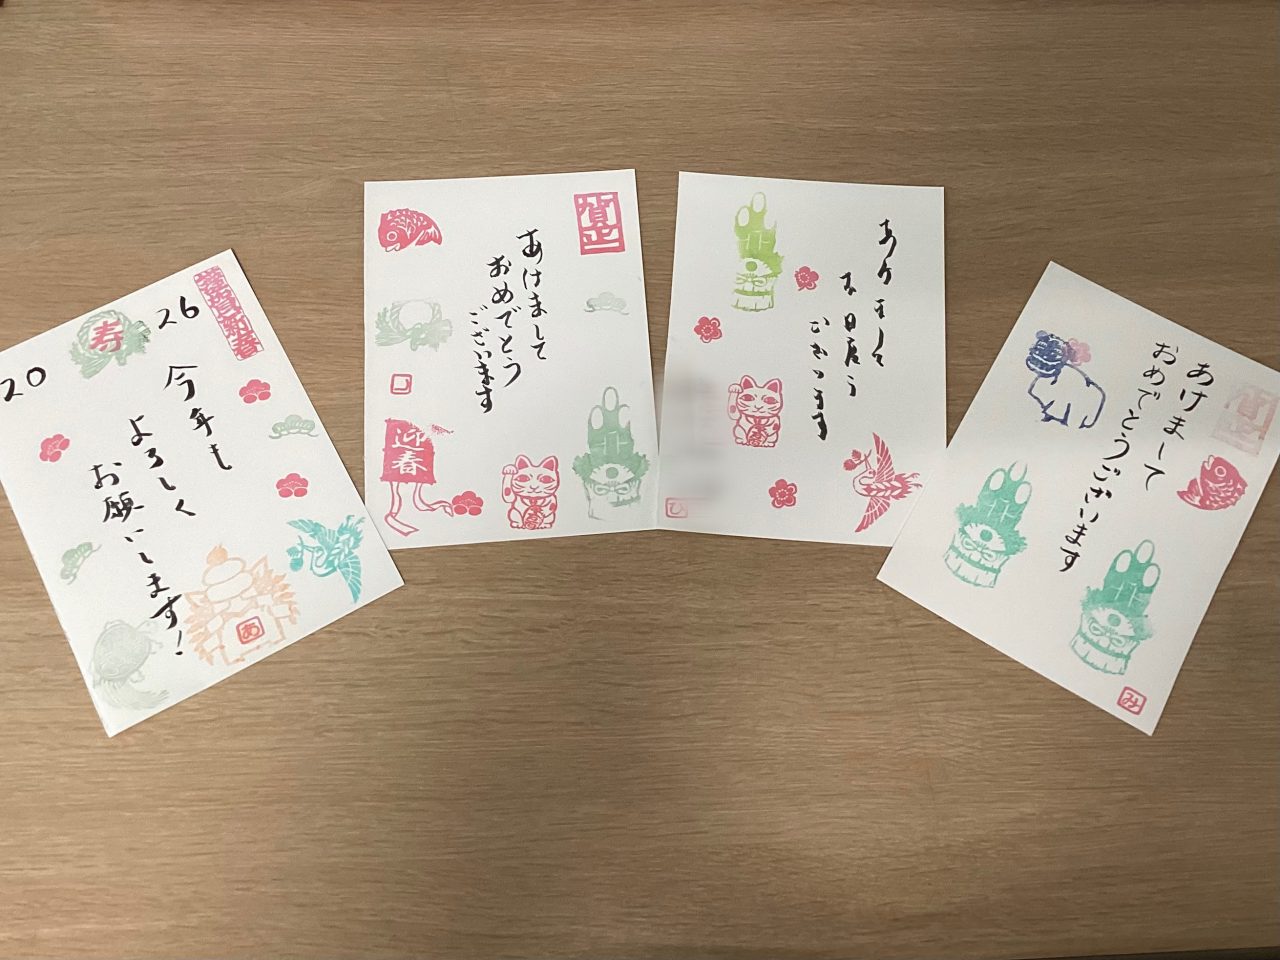 謹賀新春
寿
2026
今年も
よろしく
お願いします!
あ
賀正
あけまして
おめでとう
ございます
迎春
あけまして
ございます
ひ
賀正
あけまして
おめでとうございます
み